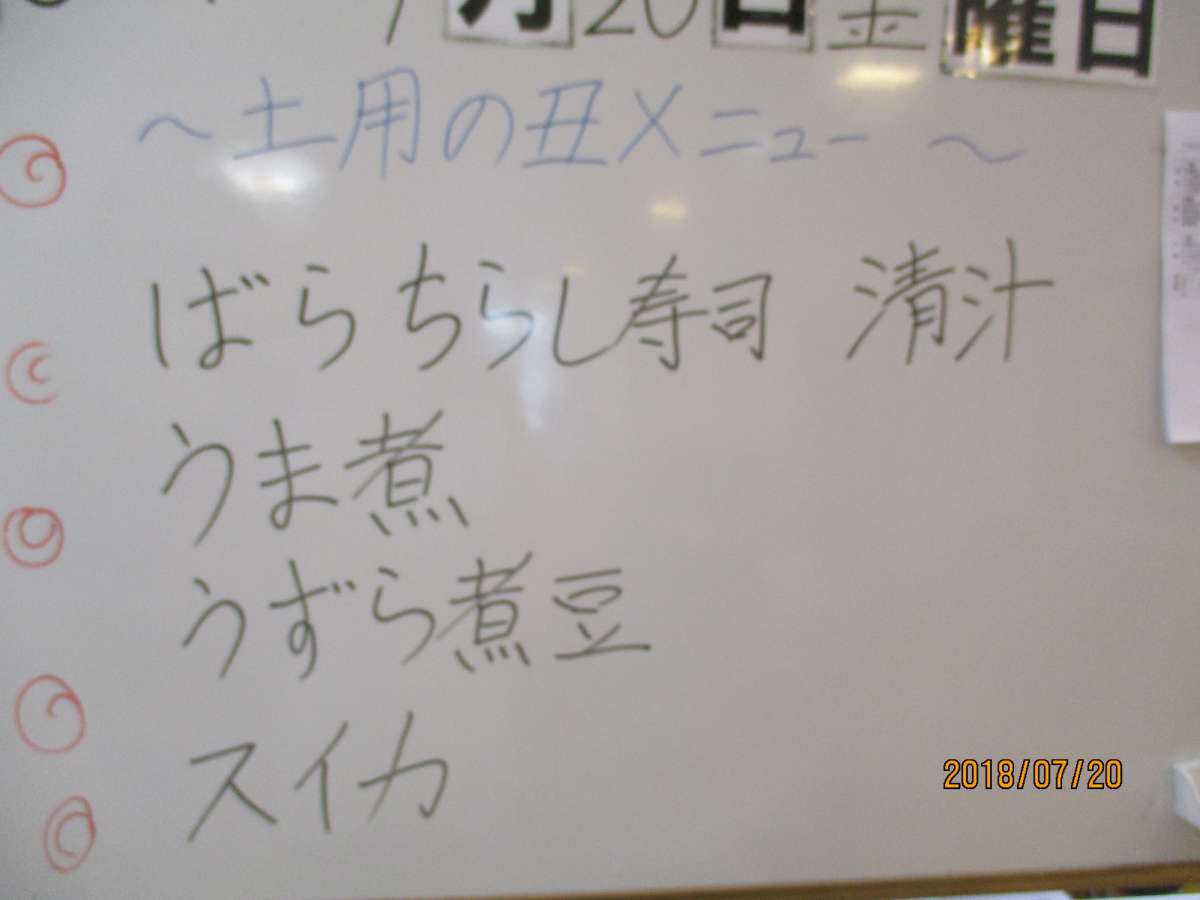 7月20日金曜日
～土用の丑メニュー～
ばらちらし寿司 清汁
うま煮
うずら煮豆
スイカ
2018/07/20